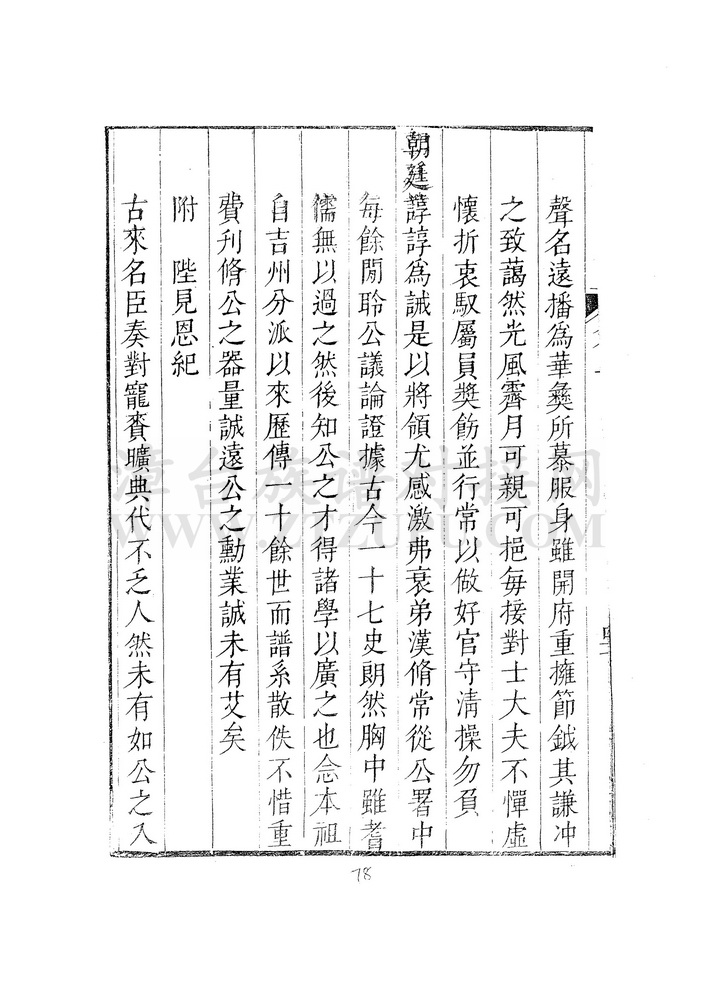 聲名遠播為華彝所慕服身雖開府重擁節鉞其謙冲
之致藹然光風霽月可親可挹每接對士大夫不憚虛
懷折衷馭屬員奬飭並行常以做好官守清操勿負
朝廷諄諄為誡是以將領尤感激弗衰弟漢脩常從公署中
每餘閒聆公議論證據古今一十七史朗然胸中雖耆
儒無以過之然後知公之才得諸學以廣之也念本祖
自吉州分派以來歷傳一十餘世而譜系散佚不惜重
費刋脩公之器量誠遠公之勳業誠未有艾矣
附 陛見恩紀
古來名臣奏對寵賚曠典代不乏人然未有如公之入
78
漳台族谱对接网